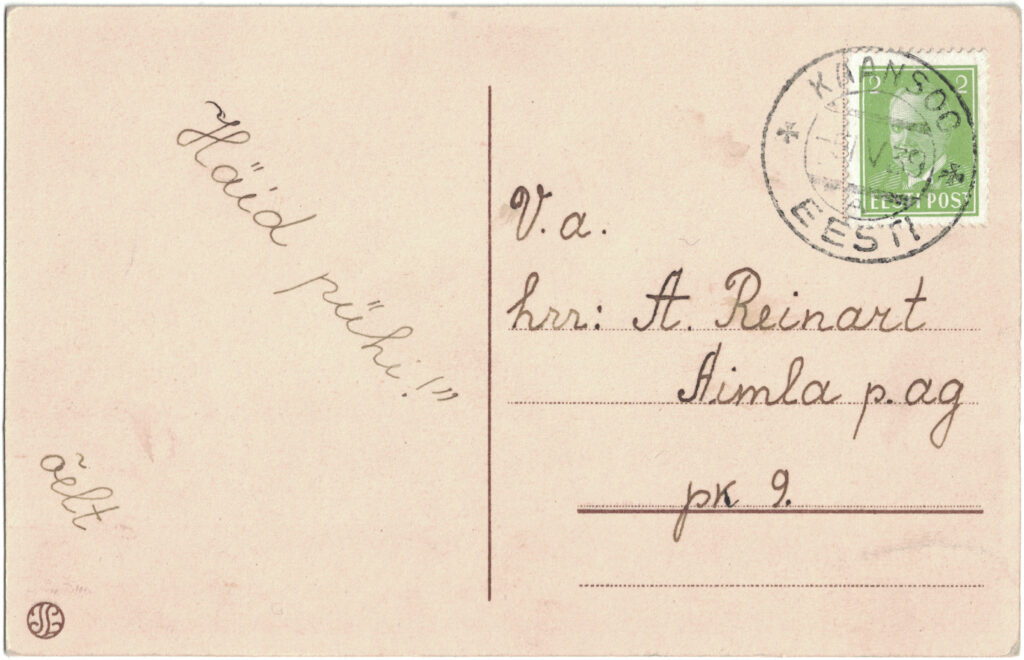 Häid
pühi!"
õelt
V. a.
hrr: A. Reinart
Aimla p. ag
pk 9.
KAANSOO
EESTI
2 2
EESTI POST